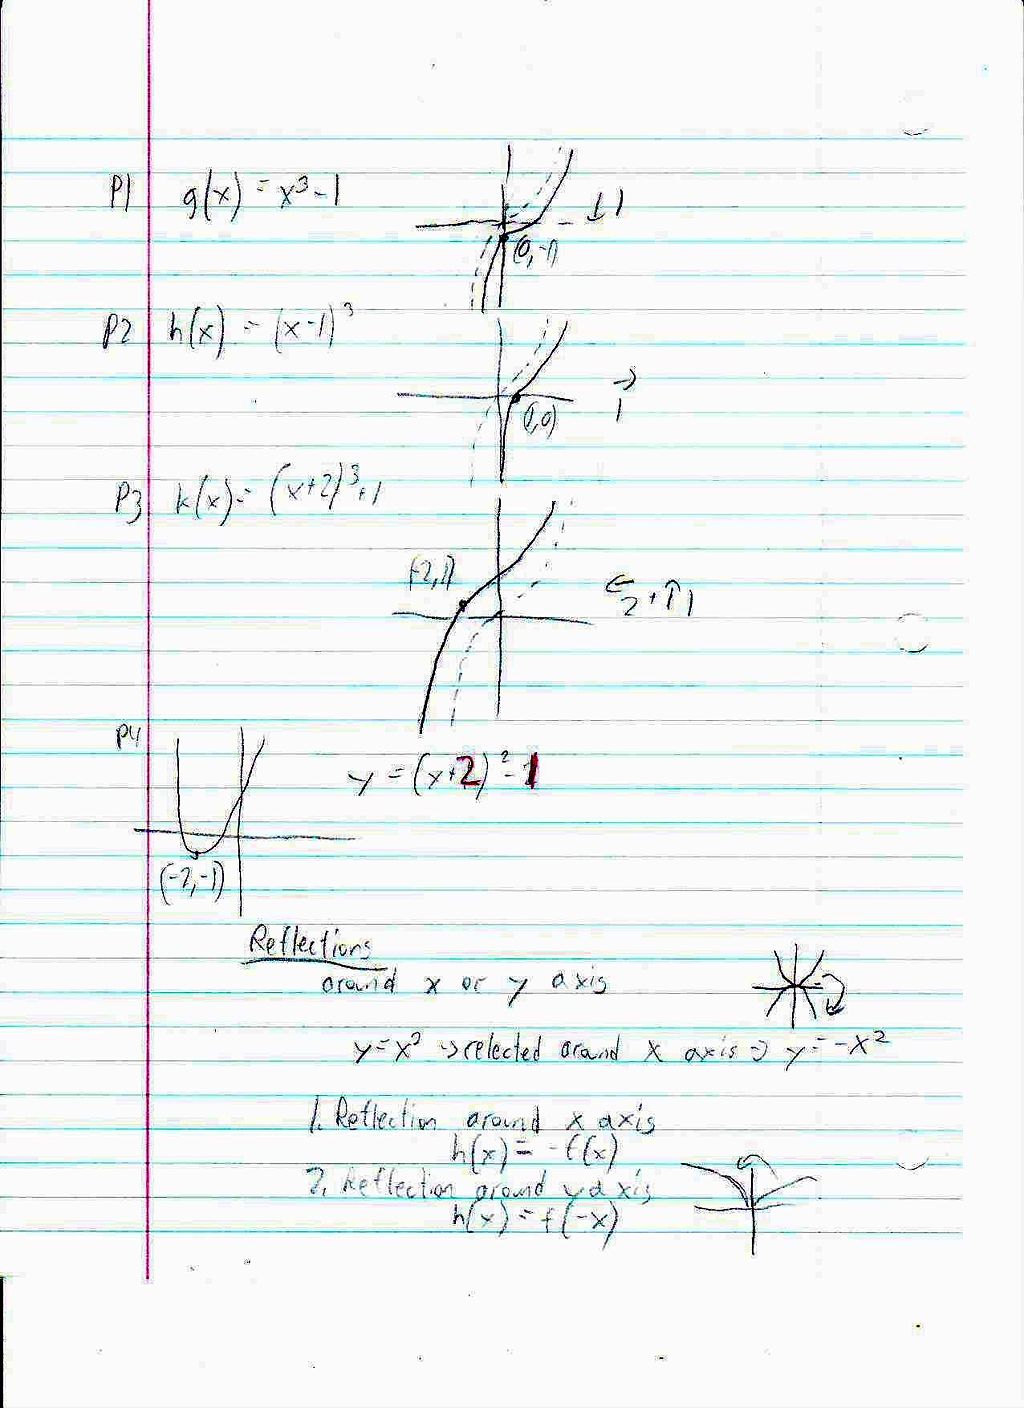 P1 g(x) = x³ - 1
↓ 1
(0, -1)
P2 h(x) = (x-1)³
→
1
(1,0)
P3 k(x) = (x+2)³+1
(-2,1)
← 2 + ↑ 1
P4
y = (x+2)² - 1
(-2,-1)
Reflections
around x or y axis
y=x² → relected around x axis ⇒ y = -x²
1. Reflection around x axis
h(x) = -f(x)
2. Reflection around y axis
h(x) = f(-x)